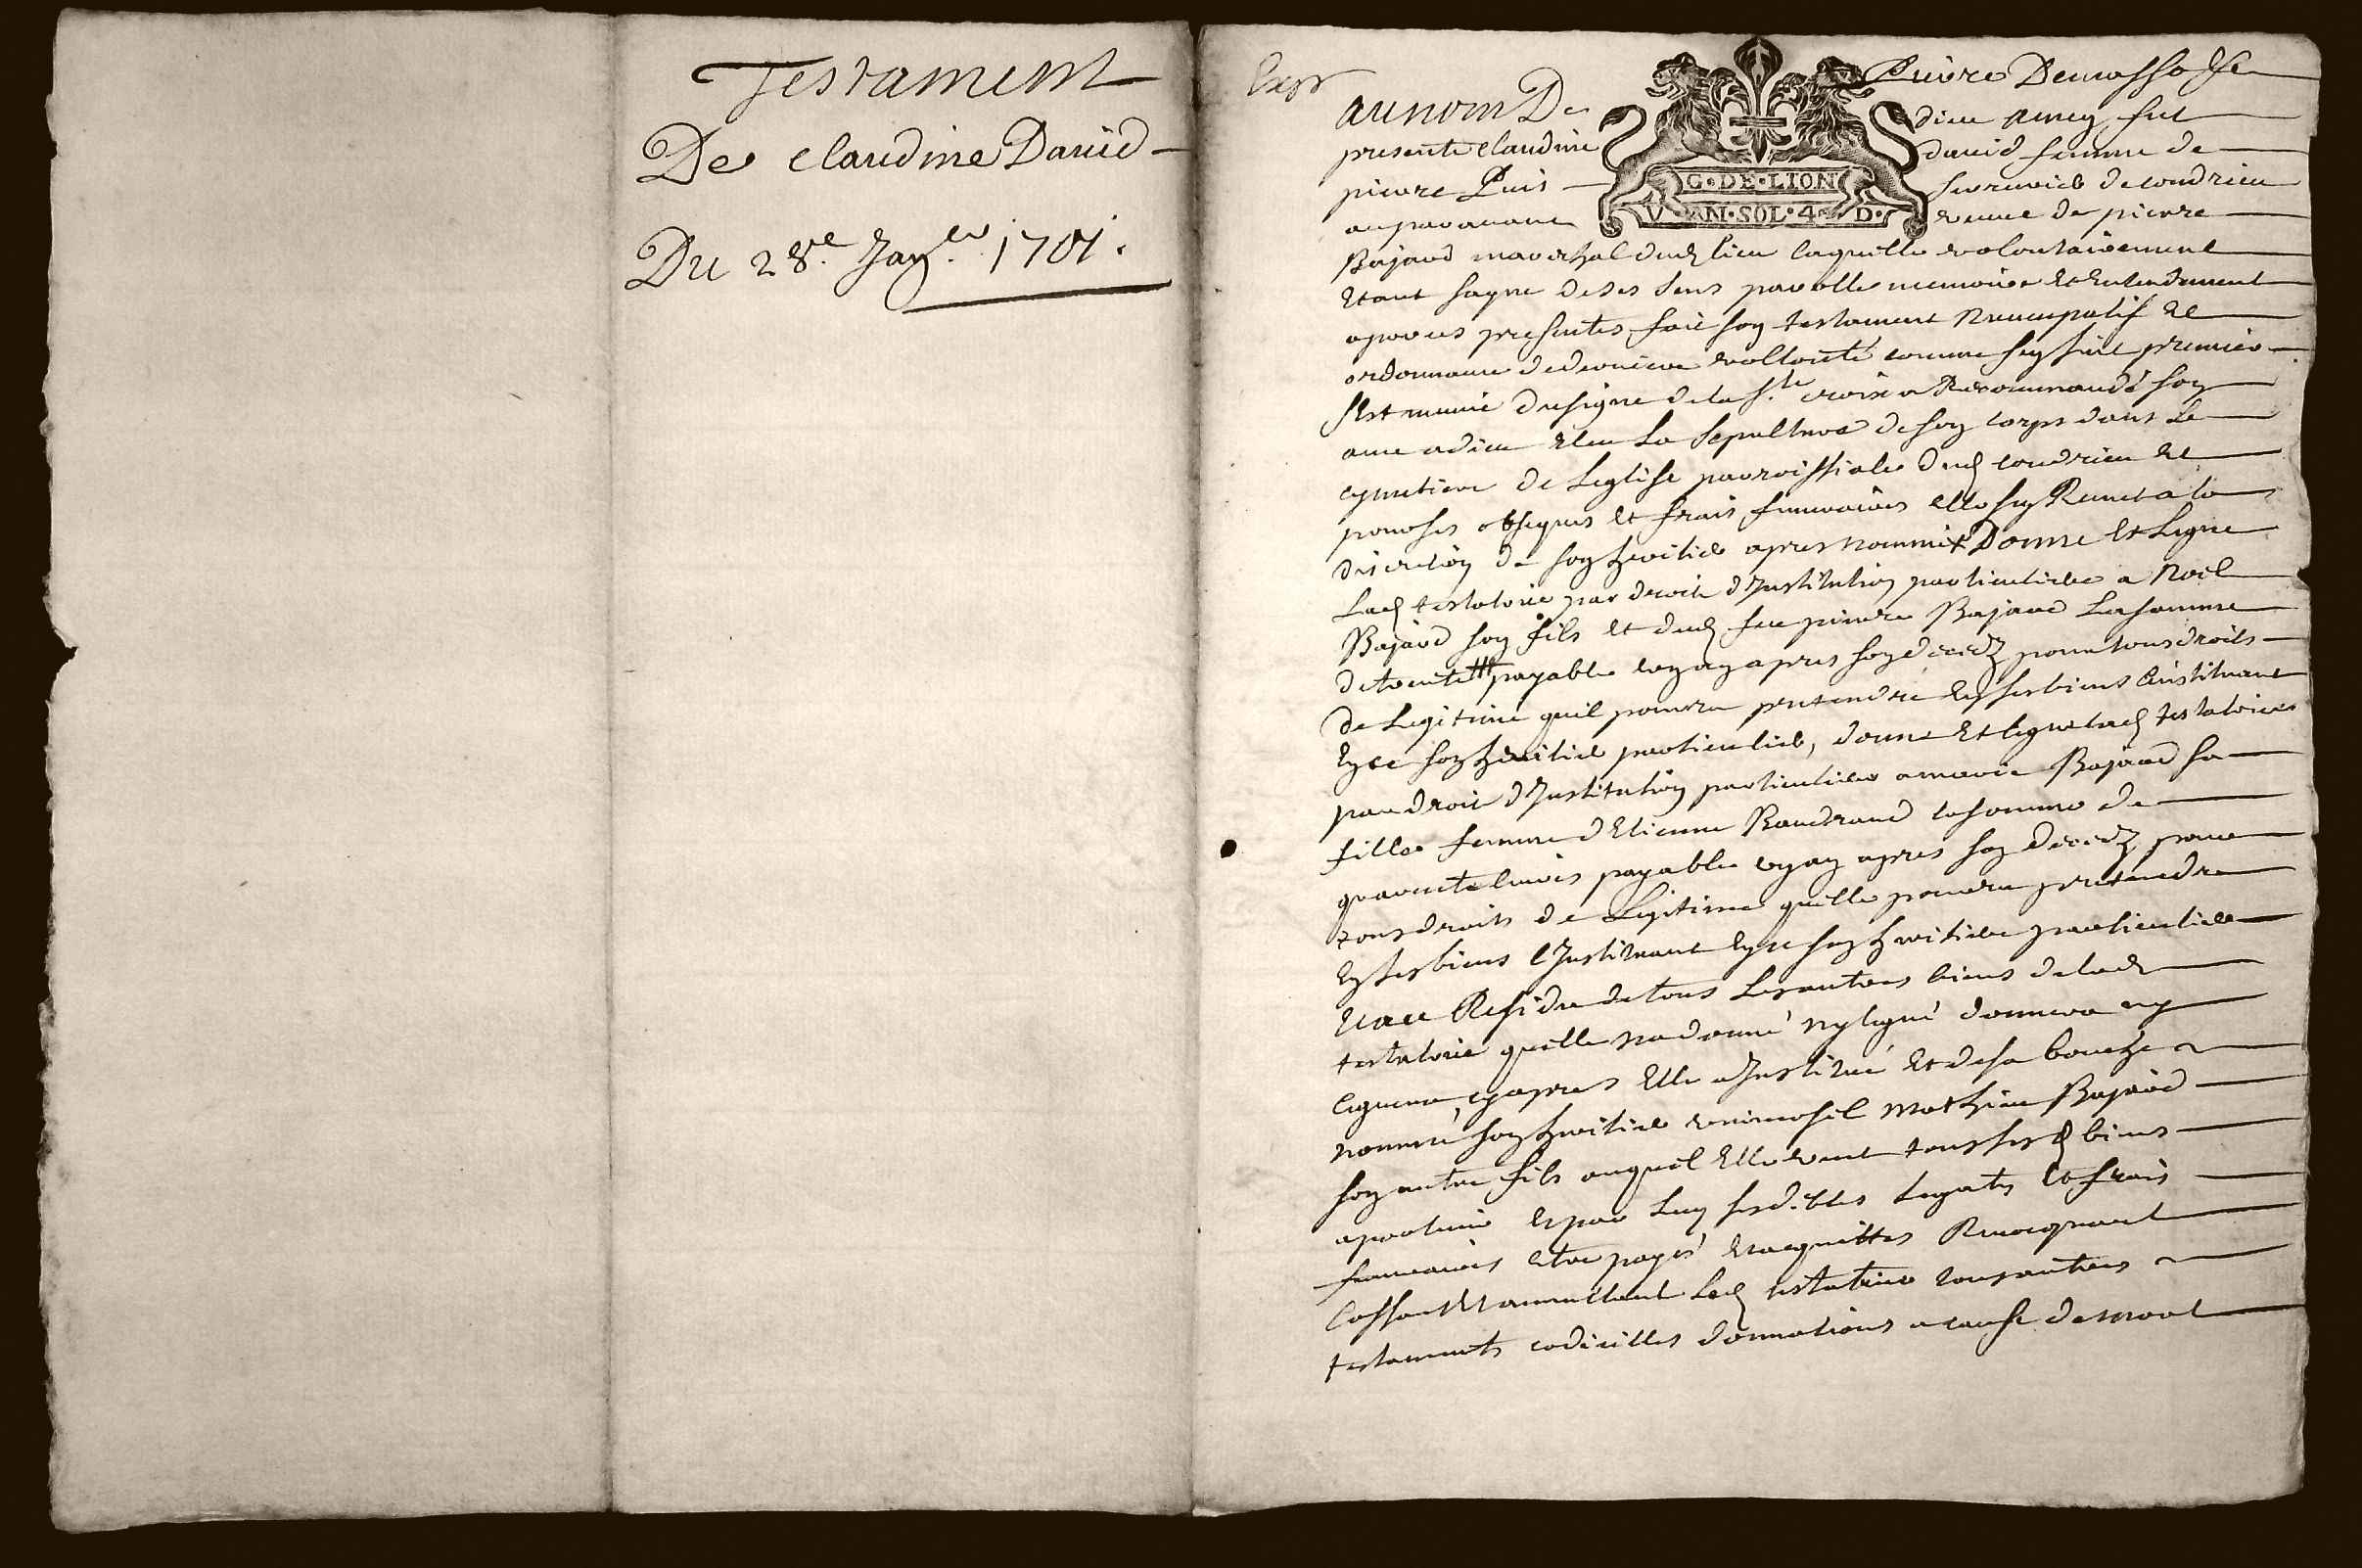 Testament
De claudine David
Du 28e. Janer. 1701.
Expr
Pierre
au nom De dieu amen fut
presente claudine david femme de
pierre Puis de condrieu
auparavant veuve de pierre
G·DE·LION
V·AN·SOL·4·D·
Bajard mareschal dud lieu laquelle volontairement
etant sayne de ses sens parolle memoire et entendement
a par ces presentes fait son testament nuncupatif et
ordonnance de derniere vollonté comme sensuit premier
sest munie du signe de la ste croix a Recommandé son
ame a dieu eleu la sepulture de son corps dans le
cymetiere de leglise parroissiale dud condrieu et
pour ses obseques et frais funeraires elle sen Remet a la
discretion de son heritier apres nommé Donne et legue
lad testatrice par droit d'Institution particuliere a noel
Bajard son fils et dud feu pierre Bajard la somme
de trente tt payable un an apres son decedz pour tous droits
de legitime quil pourra pretendre en ses biens linstituant
en ce son heritier particulier, donne et legue lad testatrice
par droit d'Institution particuliere a marie Bajard sa
fille femme d'Etienne Baudrand la somme de
quarente livres payable un an apres son decedz pour
tous droits de Legitime quelle pourra pretendre
en ses biens l'Instituant en ce son heritiere particuliere
et au Residu de tous les autres biens de lad
testatrice quelle na donné ny legué donnera ny
leguera, cy apres elle a Institué et de sa bouche
nommé son heritier universel mathieu Bajard
son autre fils auquel elle veut tous sesd biens
apartenir et par luy ses debtes legats et frais
funeraires etre payés et acquittes Revoquant
cassant et annullant lad testatrice tous autres
testaments codicilles donnations a cause de mort